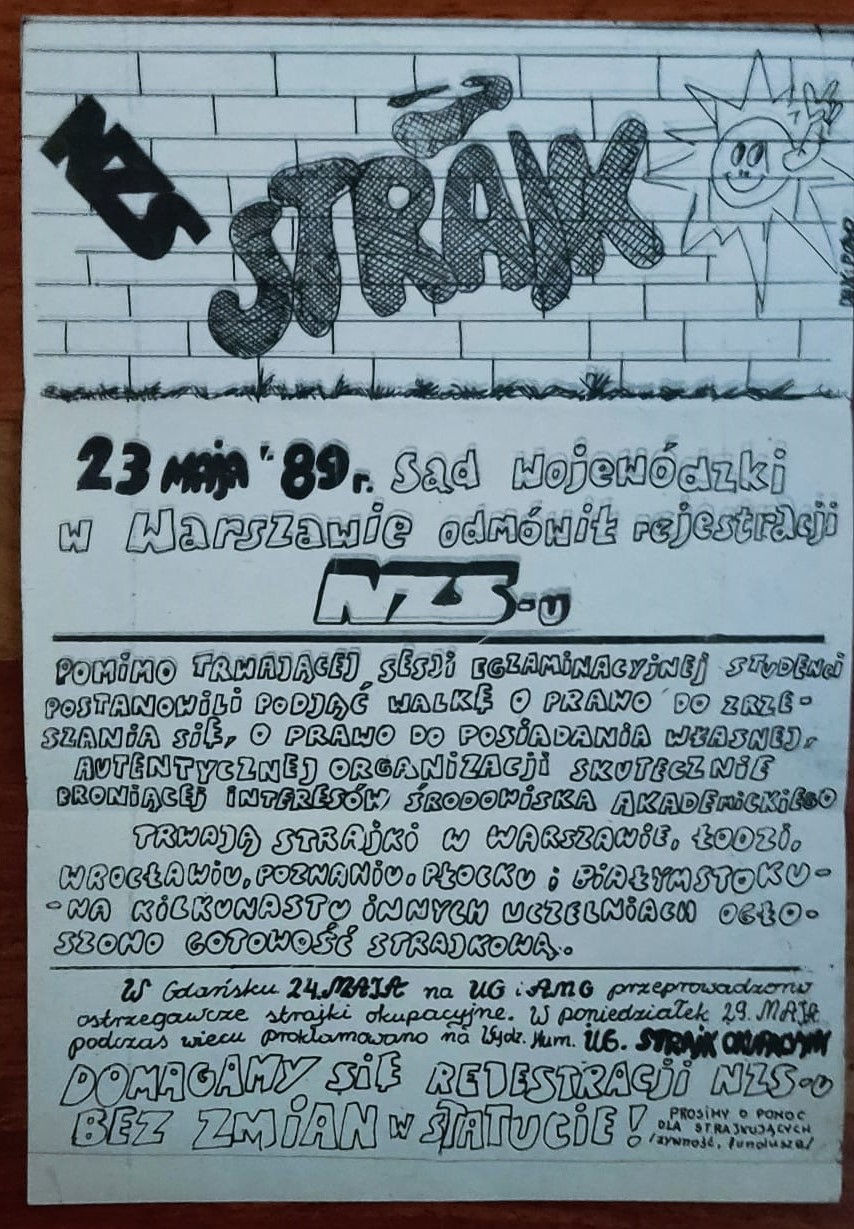 NZS
STRAJK
23 MAJA '89 r. Sąd Wojewódzki
w Warszawie odmówił rejestracji
NZS-u
POMIMO TRWAJĄCEJ SESJI EGZAMINACYJNEJ STUDENCI
POSTANOWILI PODJĄĆ WALKĘ O PRAWO DO ZRZE-
SZANIA SIĘ, O PRAWO DO POSIADANIA WŁASNEJ,
AUTENTYCZNEJ ORGANIZACJI SKUTECZNIE
BRONIĄCEJ INTERESÓW ŚRODOWISKA AKADEMICKIEGO
TRWAJĄ STRAJKI W WARSZAWIE, ŁODZI,
WROCŁAWIU, POZNANIU, PŁOCKU i BIAŁYMSTOKU-
-NA KILKUNASTU INNYCH UCZELNIACH OGŁO-
SZONO GOTOWOŚĆ STRAJKOWĄ.
W Gdańsku 24. MAJA na UG i AMG przeprowadzono
ostrzegawcze strajki okupacyjne. W poniedziałek 29. MAJA
podczas wiecu proklamowano na Wydz. Hum. UG. STRAJK OKUPACYJNY
DOMAGAMY SIĘ REJESTRACJI NZS-u
BEZ ZMIAN w STATUCIE!
PROSIMY O POMOC
DLA STRAJKUJĄCYCH
/żywność, fundusze/